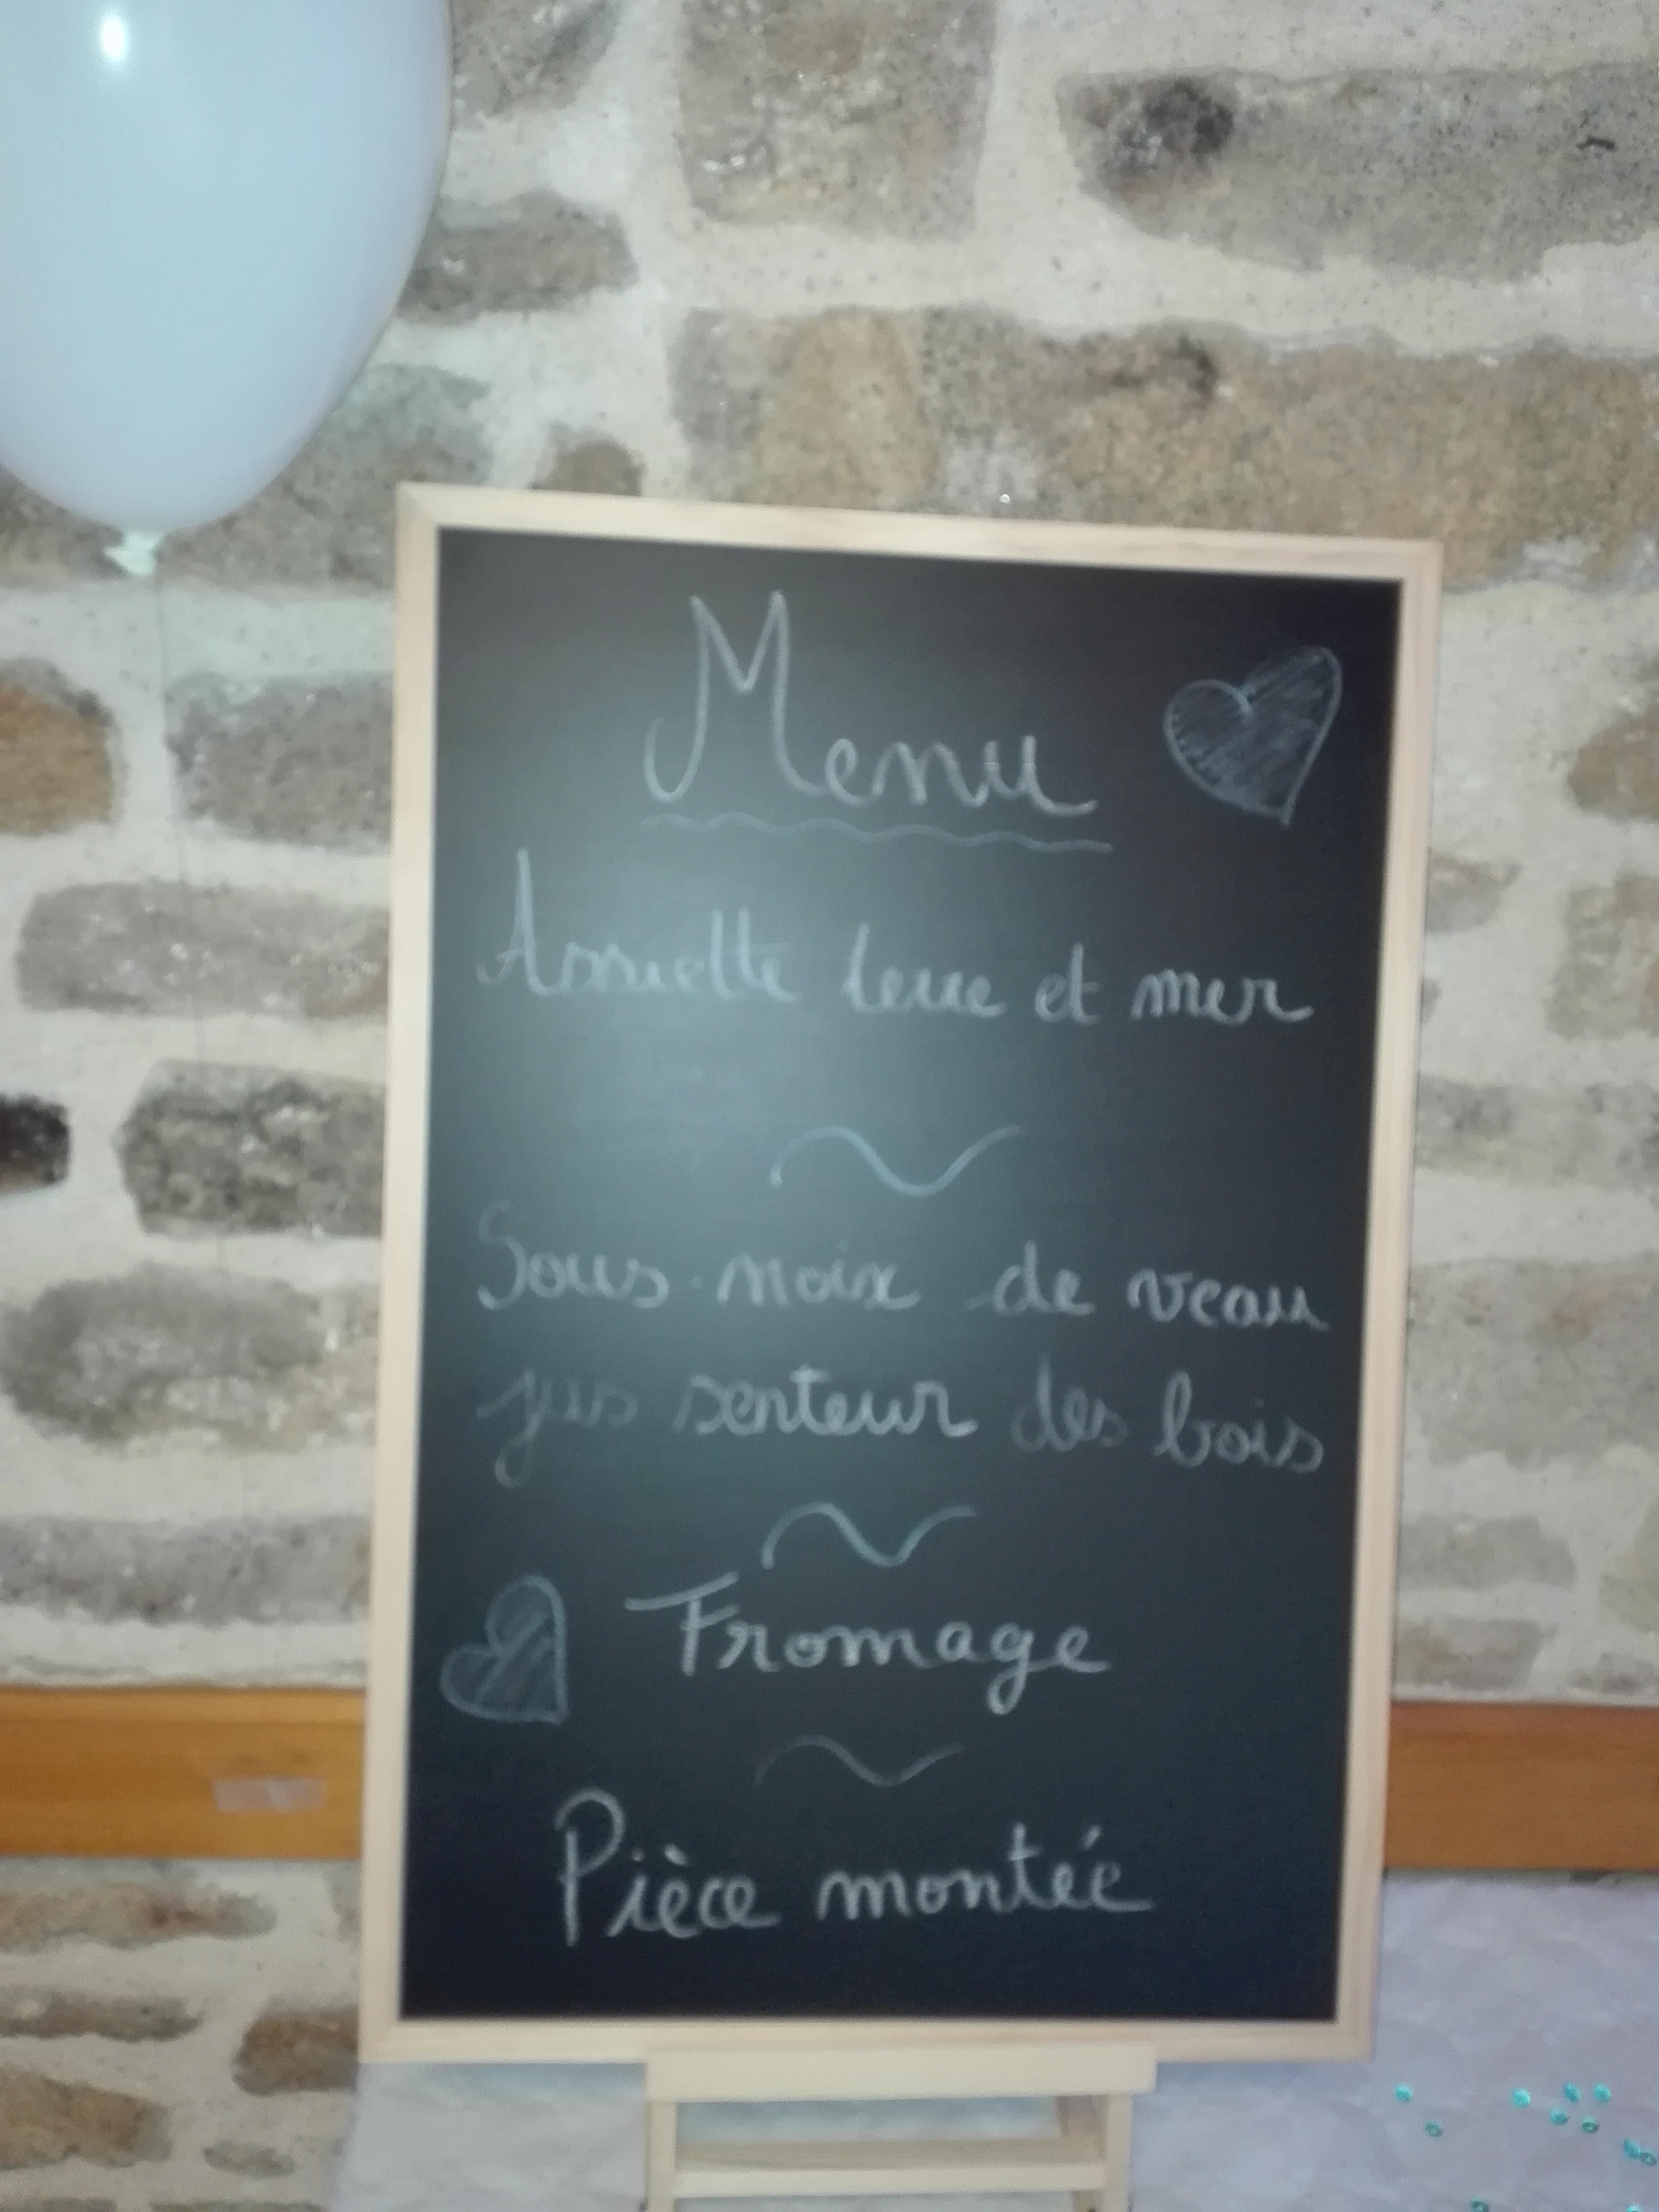 Menu
Assiette terre et mer
~
Sous-noix de veau
jus senteur des bois
~
Fromage
~
Pièce montée